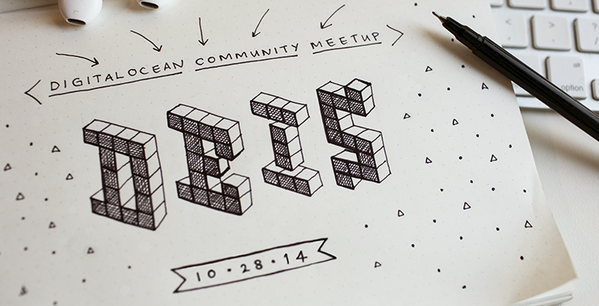 < DIGITALOCEAN COMMUNITY MEETUP >
DEIS
10 • 28 • 14
option